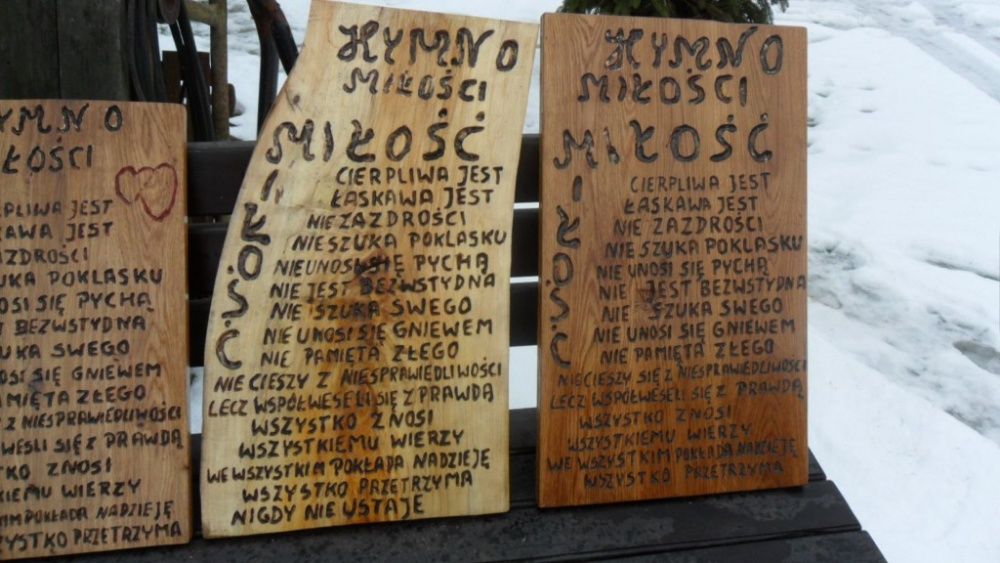 HYMN O
ŁOŚCI
RPLIWA JEST
KAWA JEST
ZAZDROŚCI
UKA POKLASKU
OSI SIĘ PYCHĄ
T BEZWSTYDNA
UKA SWEGO
OSI SIĘ GNIEWEM
MIĘTA ZŁEGO
Z NIESPRAWIEDLIWOŚCI
WESELI SIĘ Z PRAWDĄ
TKO ZNOSI
KIEMU WIERZY
POKŁADA NADZIEJĘ
YSTKO PRZETRZYMA
HYMN O
MIŁOŚCI
MIŁOŚĆ
IŁOŚĆ
CIERPLIWA JEST
ŁASKAWA JEST
NIE ZAZDROŚCI
NIE SZUKA POKLASKU
NIE UNOSI SIĘ PYCHĄ
NIE JEST BEZWSTYDNA
NIE SZUKA SWEGO
NIE UNOSI SIĘ GNIEWEM
NIE PAMIĘTA ZŁEGO
NIE CIESZY Z NIESPRAWIEDLIWOŚCI
LECZ WSPÓŁWESELI SIĘ Z PRAWDĄ
WSZYSTKO ZNOSI
WSZYSTKIEMU WIERZY
WE WSZYSTKIM POKŁADA NADZIEJĘ
WSZYSTKO PRZETRZYMA
NIGDY NIE USTAJE
HYMN O
MIŁOŚCI
MIŁOŚĆ
IŁOŚĆ
CIERPLIWA JEST
ŁASKAWA JEST
NIE ZAZDROŚCI
NIE SZUKA POKLASKU
NIE UNOSI SIĘ PYCHĄ
NIE JEST BEZWSTYDNA
NIE SZUKA SWEGO
NIE UNOSI SIĘ GNIEWEM
NIE PAMIĘTA ZŁEGO
NIE CIESZY SIĘ Z NIESPRAWIEDLIWOŚCI
LECZ WSPÓŁWESELI SIĘ Z PRAWDĄ
WSZYSTKO ZNOSI
WSZYSTKIEMU WIERZY
WE WSZYSTKIM POKŁADA NADZIEJĘ
WSZYSTKO PRZETRZYMA